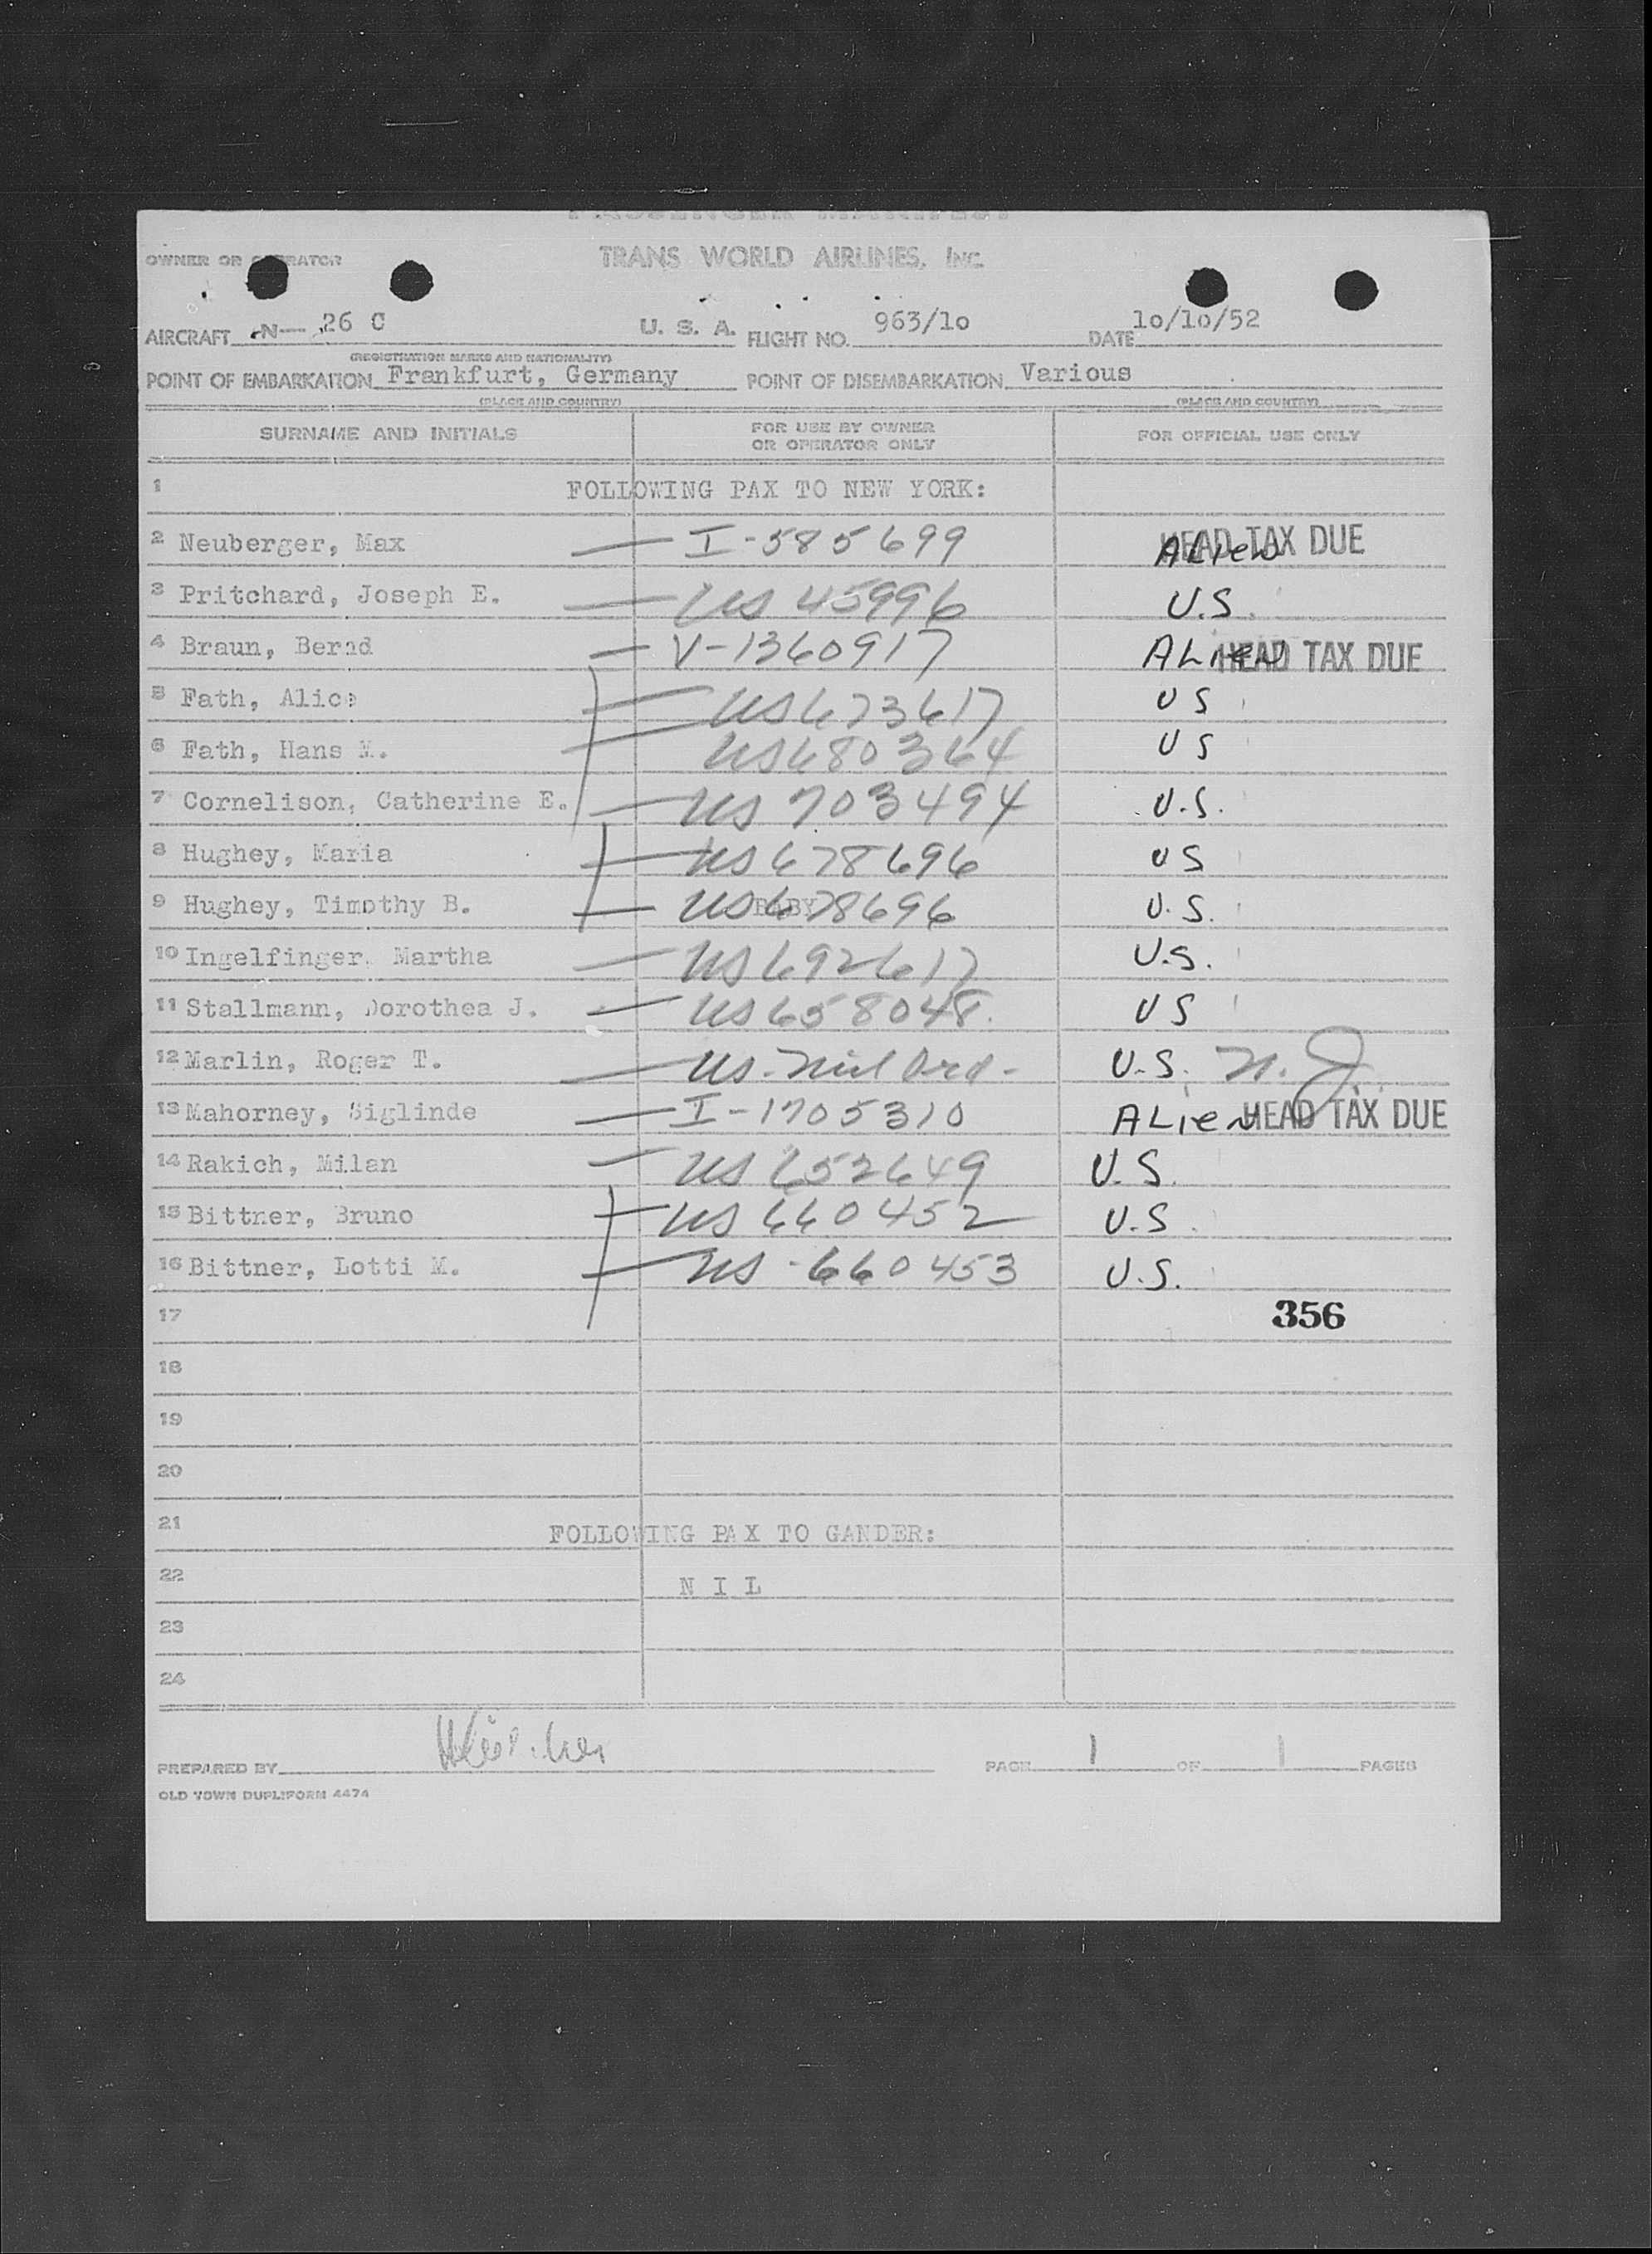 PASSENGER MANIFEST
OWNER OR OPERATOR TRANS WORLD AIRLINES, INC.
AIRCRAFT N— 26 C U. S. A. FLIGHT NO. 963/10 DATE 10/10/52
(REGISTRATION MARKS AND NATIONALITY)
POINT OF EMBARKATION Frankfurt, Germany POINT OF DISEMBARKATION Various
(PLACE AND COUNTRY) (PLACE AND COUNTRY)
SURNAME AND INITIALS FOR USE BY OWNER OR OPERATOR ONLY FOR OFFICIAL USE ONLY
1 FOLLOWING PAX TO NEW YORK:
2 Neuberger, Max — I-585699 ALien HEAD TAX DUE
3 Pritchard, Joseph E. — US 45996 U.S.
4 Braun, Bernd — V-1360917 ALien HEAD TAX DUE
5 Fath, Alice — US 673617 US
6 Fath, Hans M. — US 680364 US
7 Cornelison, Catherine E. — US 703494 U.S.
8 Hughey, Maria — US 678696 US
9 Hughey, Timothy B. — BABY US 678696 U.S.
10 Ingelfinger, Martha — US 692617 U.S.
11 Stallmann, Dorothea J. — US 658048. US
12 Marlin, Roger T. — US. Mil Ord- U.S. N.J.
13 Mahorney, Siglinde — I-1705310 ALien HEAD TAX DUE
14 Rakich, Milan — US 652649 U.S.
15 Bittner, Bruno — US 660452 U.S.
16 Bittner, Lotti M. — US-660453 U.S.
17 356
18
19
20
21 FOLLOWING PAX TO GANDER:
22 N I L
23
24
PREPARED BY PAGE 1 OF 1 PAGES
OLD TOWN DUPLIFORM 4474